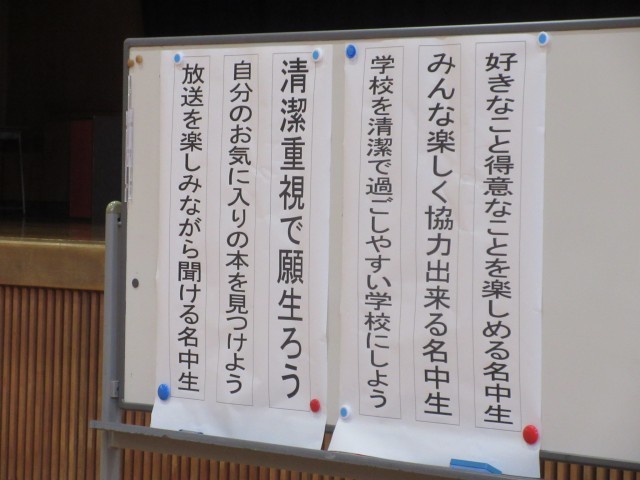 好きなこと得意なことを楽しめる名中生
みんな楽しく協力出来る名中生
学校を清潔で過ごしやすい学校にしよう
清潔重視で願生ろう
自分のお気に入りの本を見つけよう
放送を楽しみながら聞ける名中生